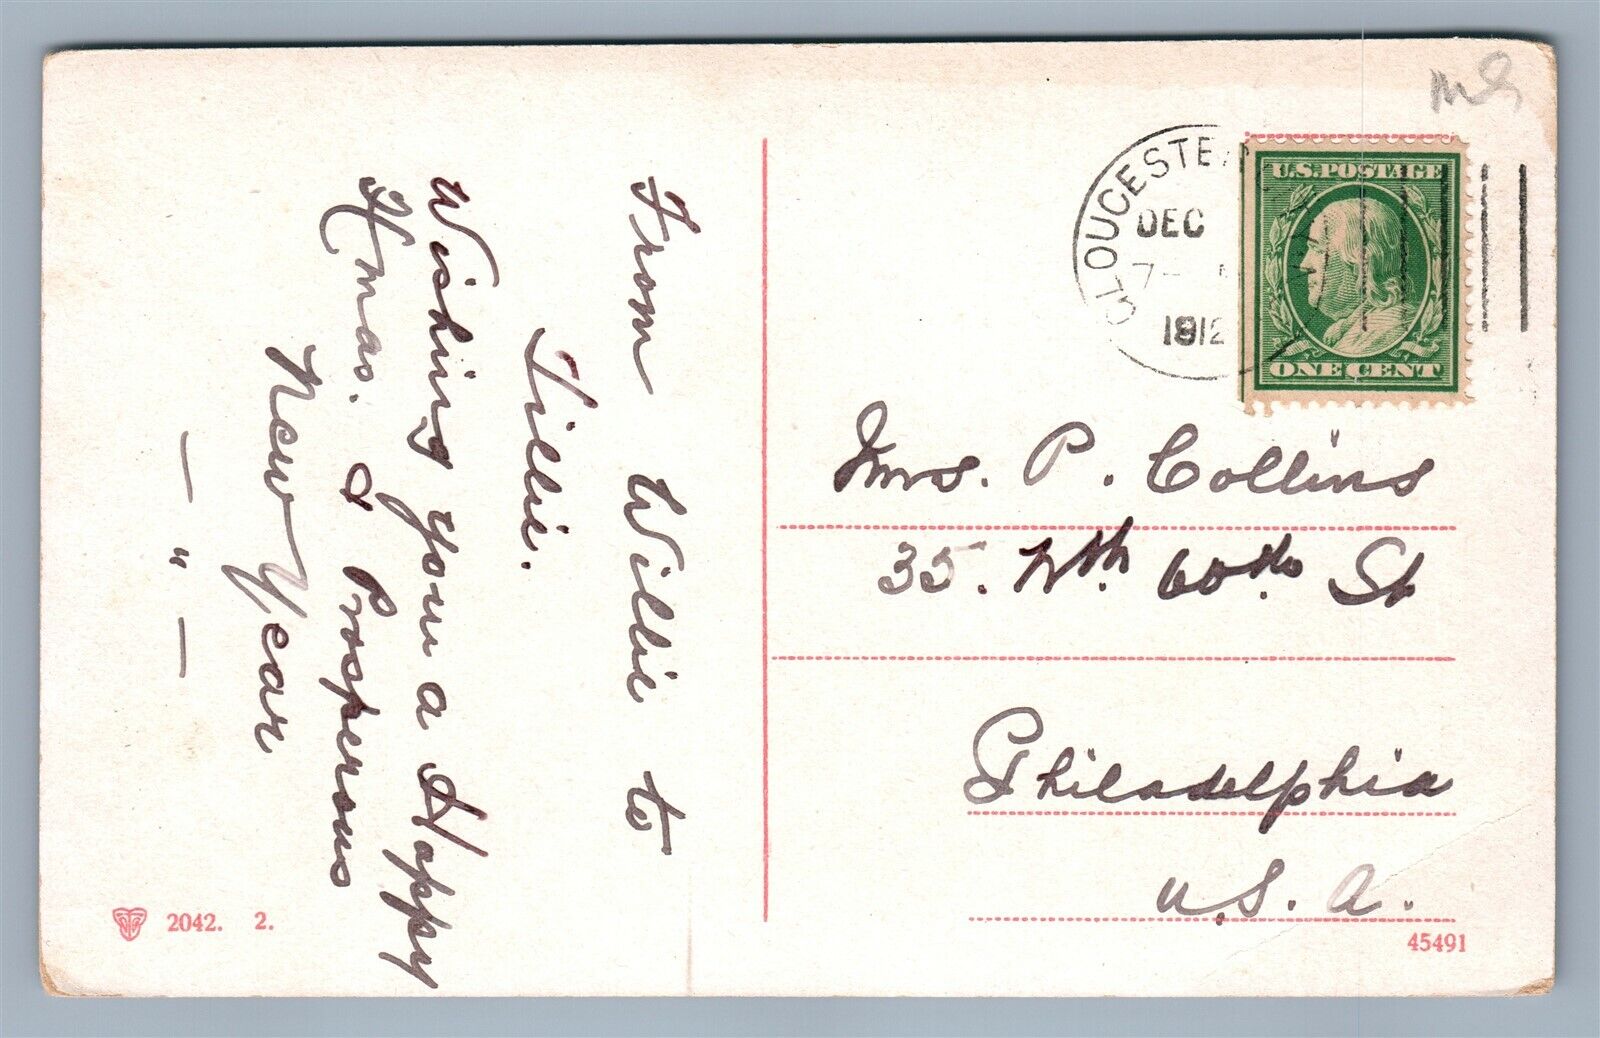 From Willie to
Tillie.
Wishing you a Happy
Xmas. & Prosperous
New Year
— " —
GLOUCESTER
DEC
7-
1912
U.S. POSTAGE
ONE CENT
Mrs. P. Collins
35. Nth. 60th. St
Philadelphia
U.S.A.
2042. 2.
45491